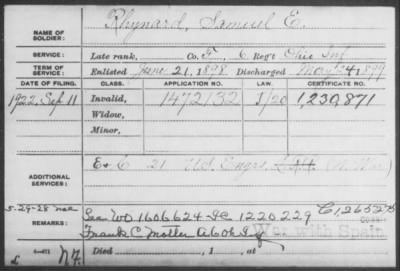 NAME OF SOLDIER: Rhynard, Samuel E.
SERVICE: Late rank, Co. F, 6 Reg't Ohio Inf
TERM OF SERVICE: Enlisted June 21, 1898 Discharged May 24 1899
DATE OF FILING. CLASS. APPLICATION NO. LAW. CERTIFICATE NO.
1922, Sep 11 Invalid, 1472132 1,230,871
Widow,
Minor,
ADDITIONAL SERVICES: E + E 21 U.S. Engrs.
5-29-28 C 1,265,275
REMARKS: See WO 1606624 - IC 1220229
Frank C War with Spain
Died , 1 , at